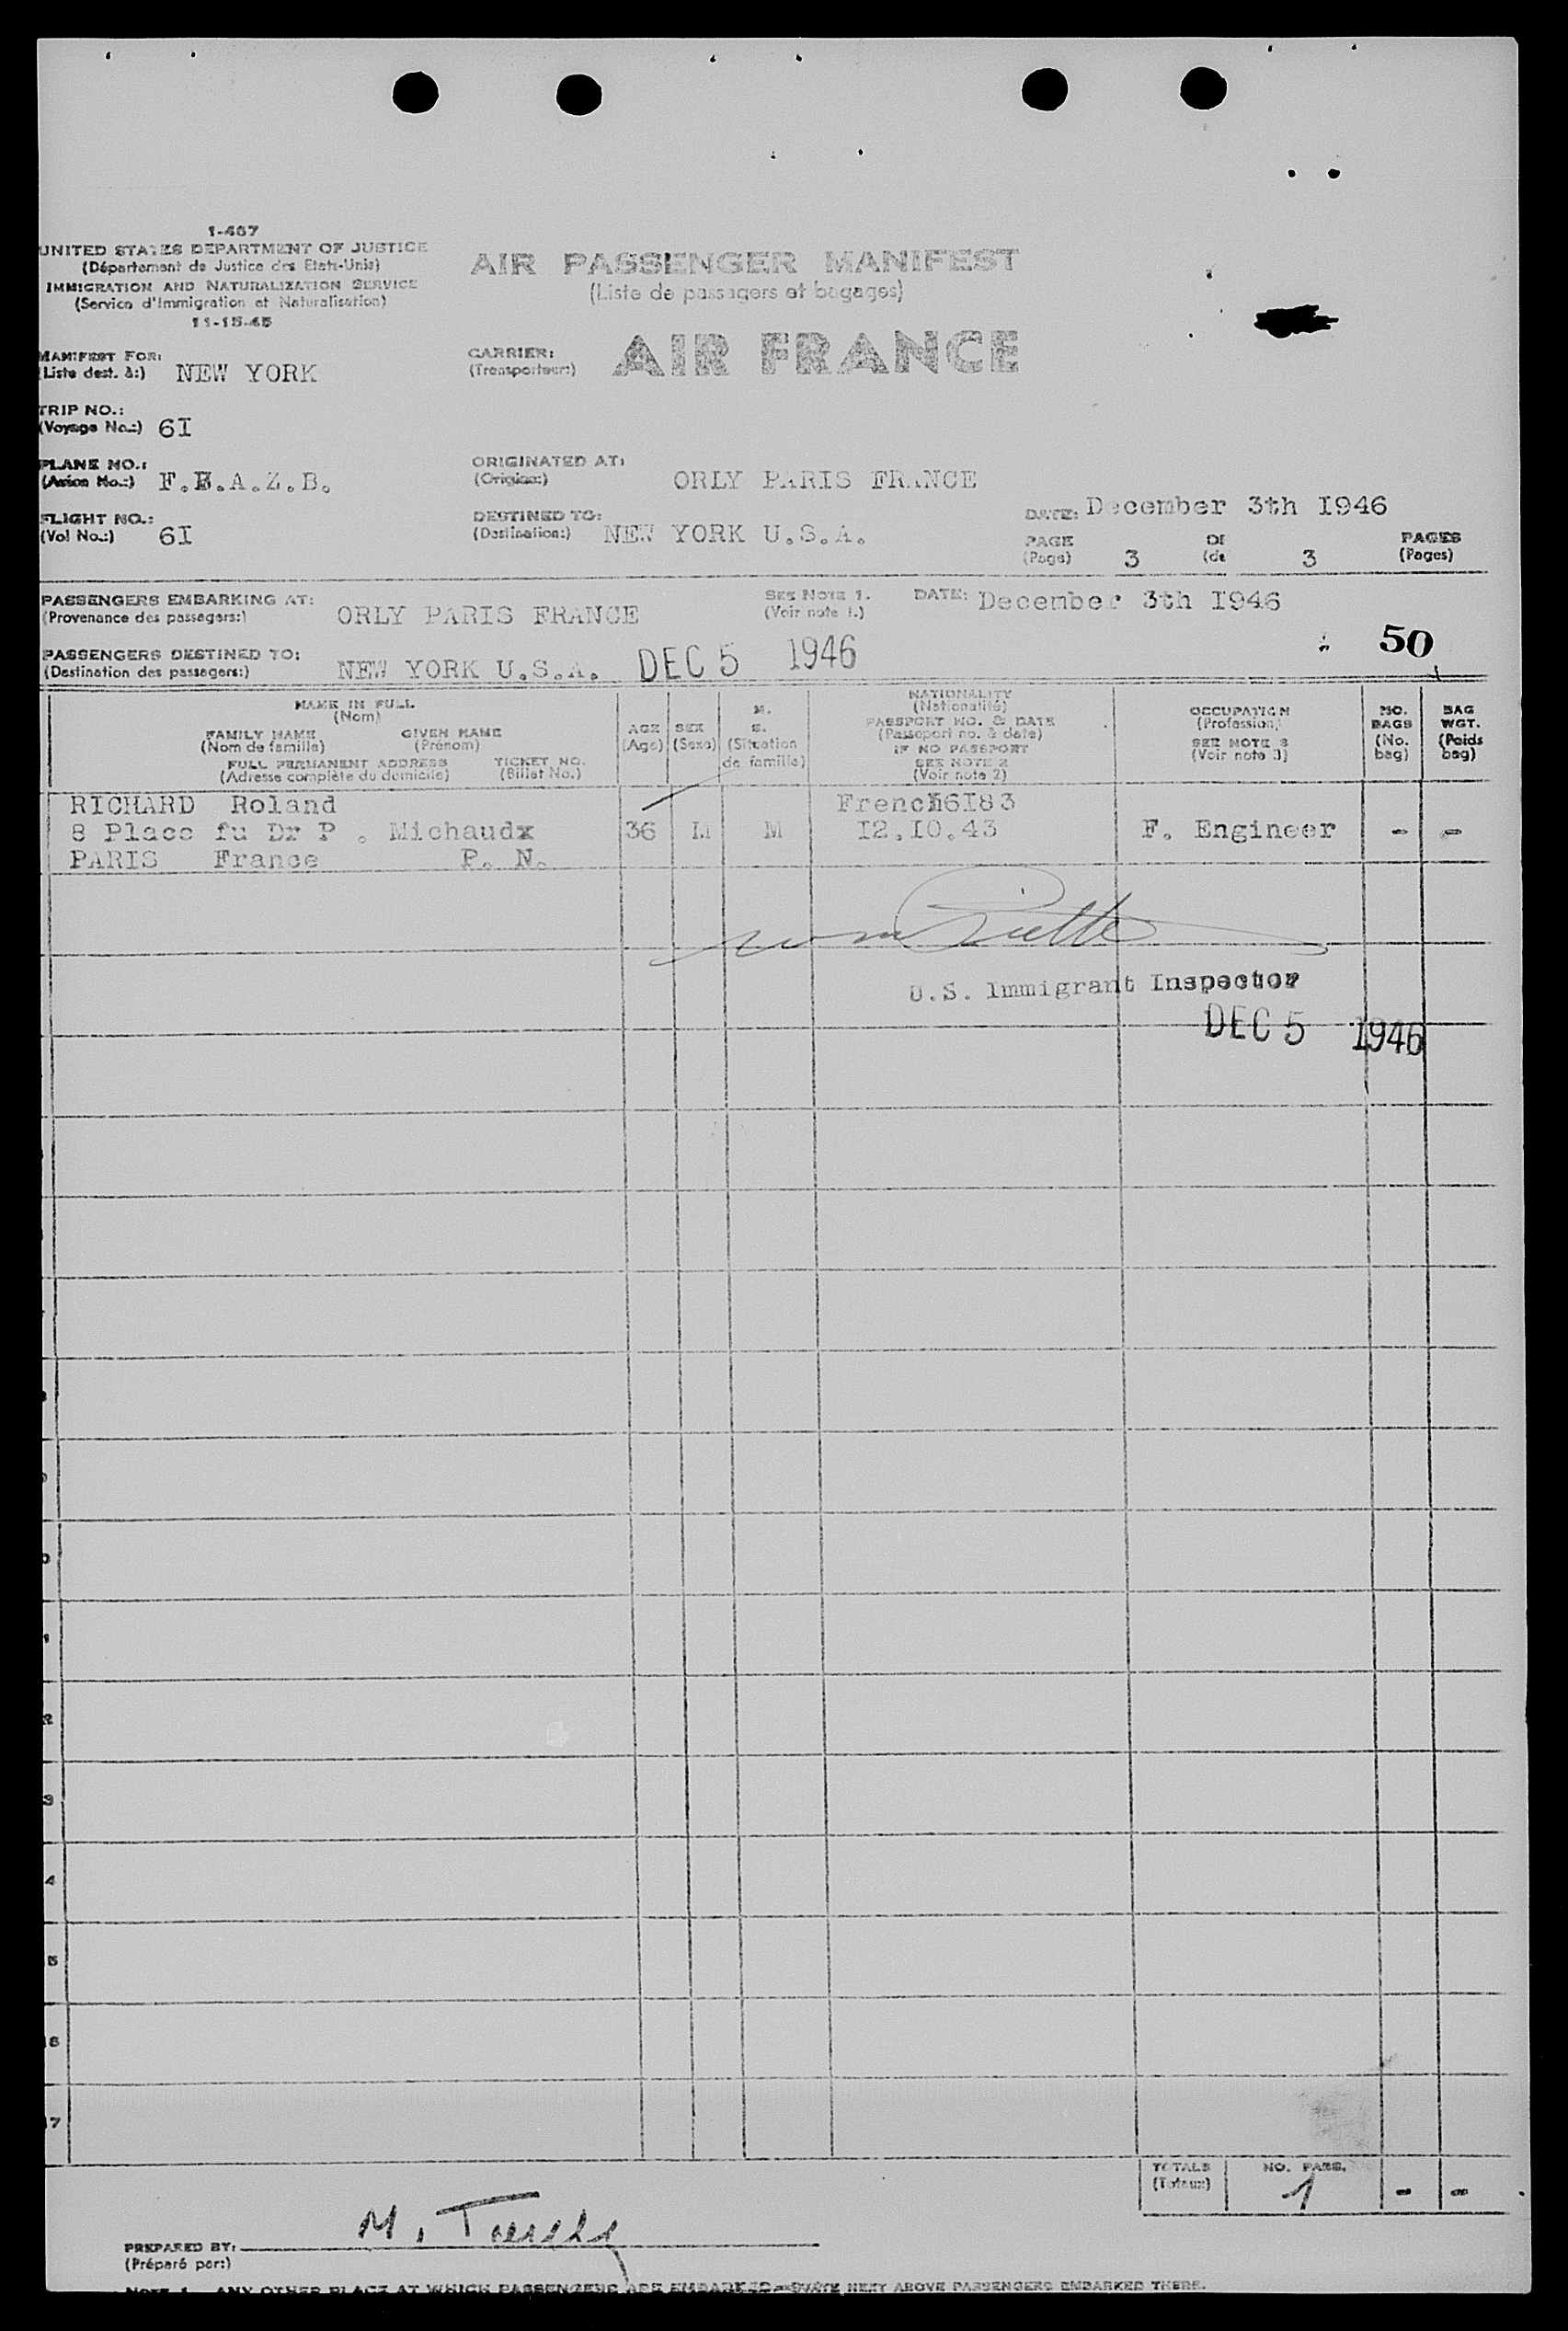 1-467
UNITED STATES DEPARTMENT OF JUSTICE
(Département de Justice des Etats-Unis)
IMMIGRATION AND NATURALIZATION SERVICE
(Service d'Immigration et Naturalisation)
11-15-45
AIR PASSENGER MANIFEST
(Liste de passagers et bagages)
MANIFEST FOR:
(Liste dest. à:) NEW YORK
CARRIER:
(Transporteur:) AIR FRANCE
TRIP NO.:
(Voyage No.:) 6I
PLANE NO.:
(Avion No.:) F.B.A.Z.B.
ORIGINATED AT:
(Origine:) ORLY PARIS FRANCE
FLIGHT NO.:
(Vol No.:) 6I
DESTINED TO:
(Destination:) NEW YORK U.S.A.
DATE: December 3th I946
PAGE OF PAGES
(Page) 3 (de 3 (Pages)
PASSENGERS EMBARKING AT:
(Provenance des passagers:) ORLY PARIS FRANCE
SEE NOTE 1.
(Voir note 1.)
DATE: December 3th I946
50
PASSENGERS DESTINED TO:
(Destination des passagers:) NEW YORK U.S.A. DEC 5 1946
NAME IN FULL
(Nom)
FAMILY NAME GIVEN NAME
(Nom de famille) (Prénom)
FULL PERMANENT ADDRESS TICKET NO.
(Adresse complète du domicile) (Billet No.)
AGE
(Age)
SEX
(Sexe)
M.
S.
(Situation
de famille)
NATIONALITY
(Nationalité)
PASSPORT NO. & DATE
(Passeport no. & date)
IF NO PASSPORT
SEE NOTE 2
(Voir note 2)
OCCUPATION
(Profession)
SEE NOTE 3
(Voir note 3)
NO.
BAGS
(No.
bag)
BAG
WGT.
(Poids
bag)
RICHARD Roland French I6I83
8 Place fu Dr P . Michaudx 36 M M I2.I0.43 F. Engineer - -
PARIS France P. N.
U.S. Immigrant Inspector
DEC 5 1946
2
3
4
5
16
17
TOTALS NO. PASS.
(Totaux) 1 - -
PREPARED BY:
(Préparé par:)
NOTE 1. ANY OTHER PLACE AT WHICH PASSENGERS ARE EMBARKED—STATE NEXT ABOVE PASSENGERS EMBARKED THERE.